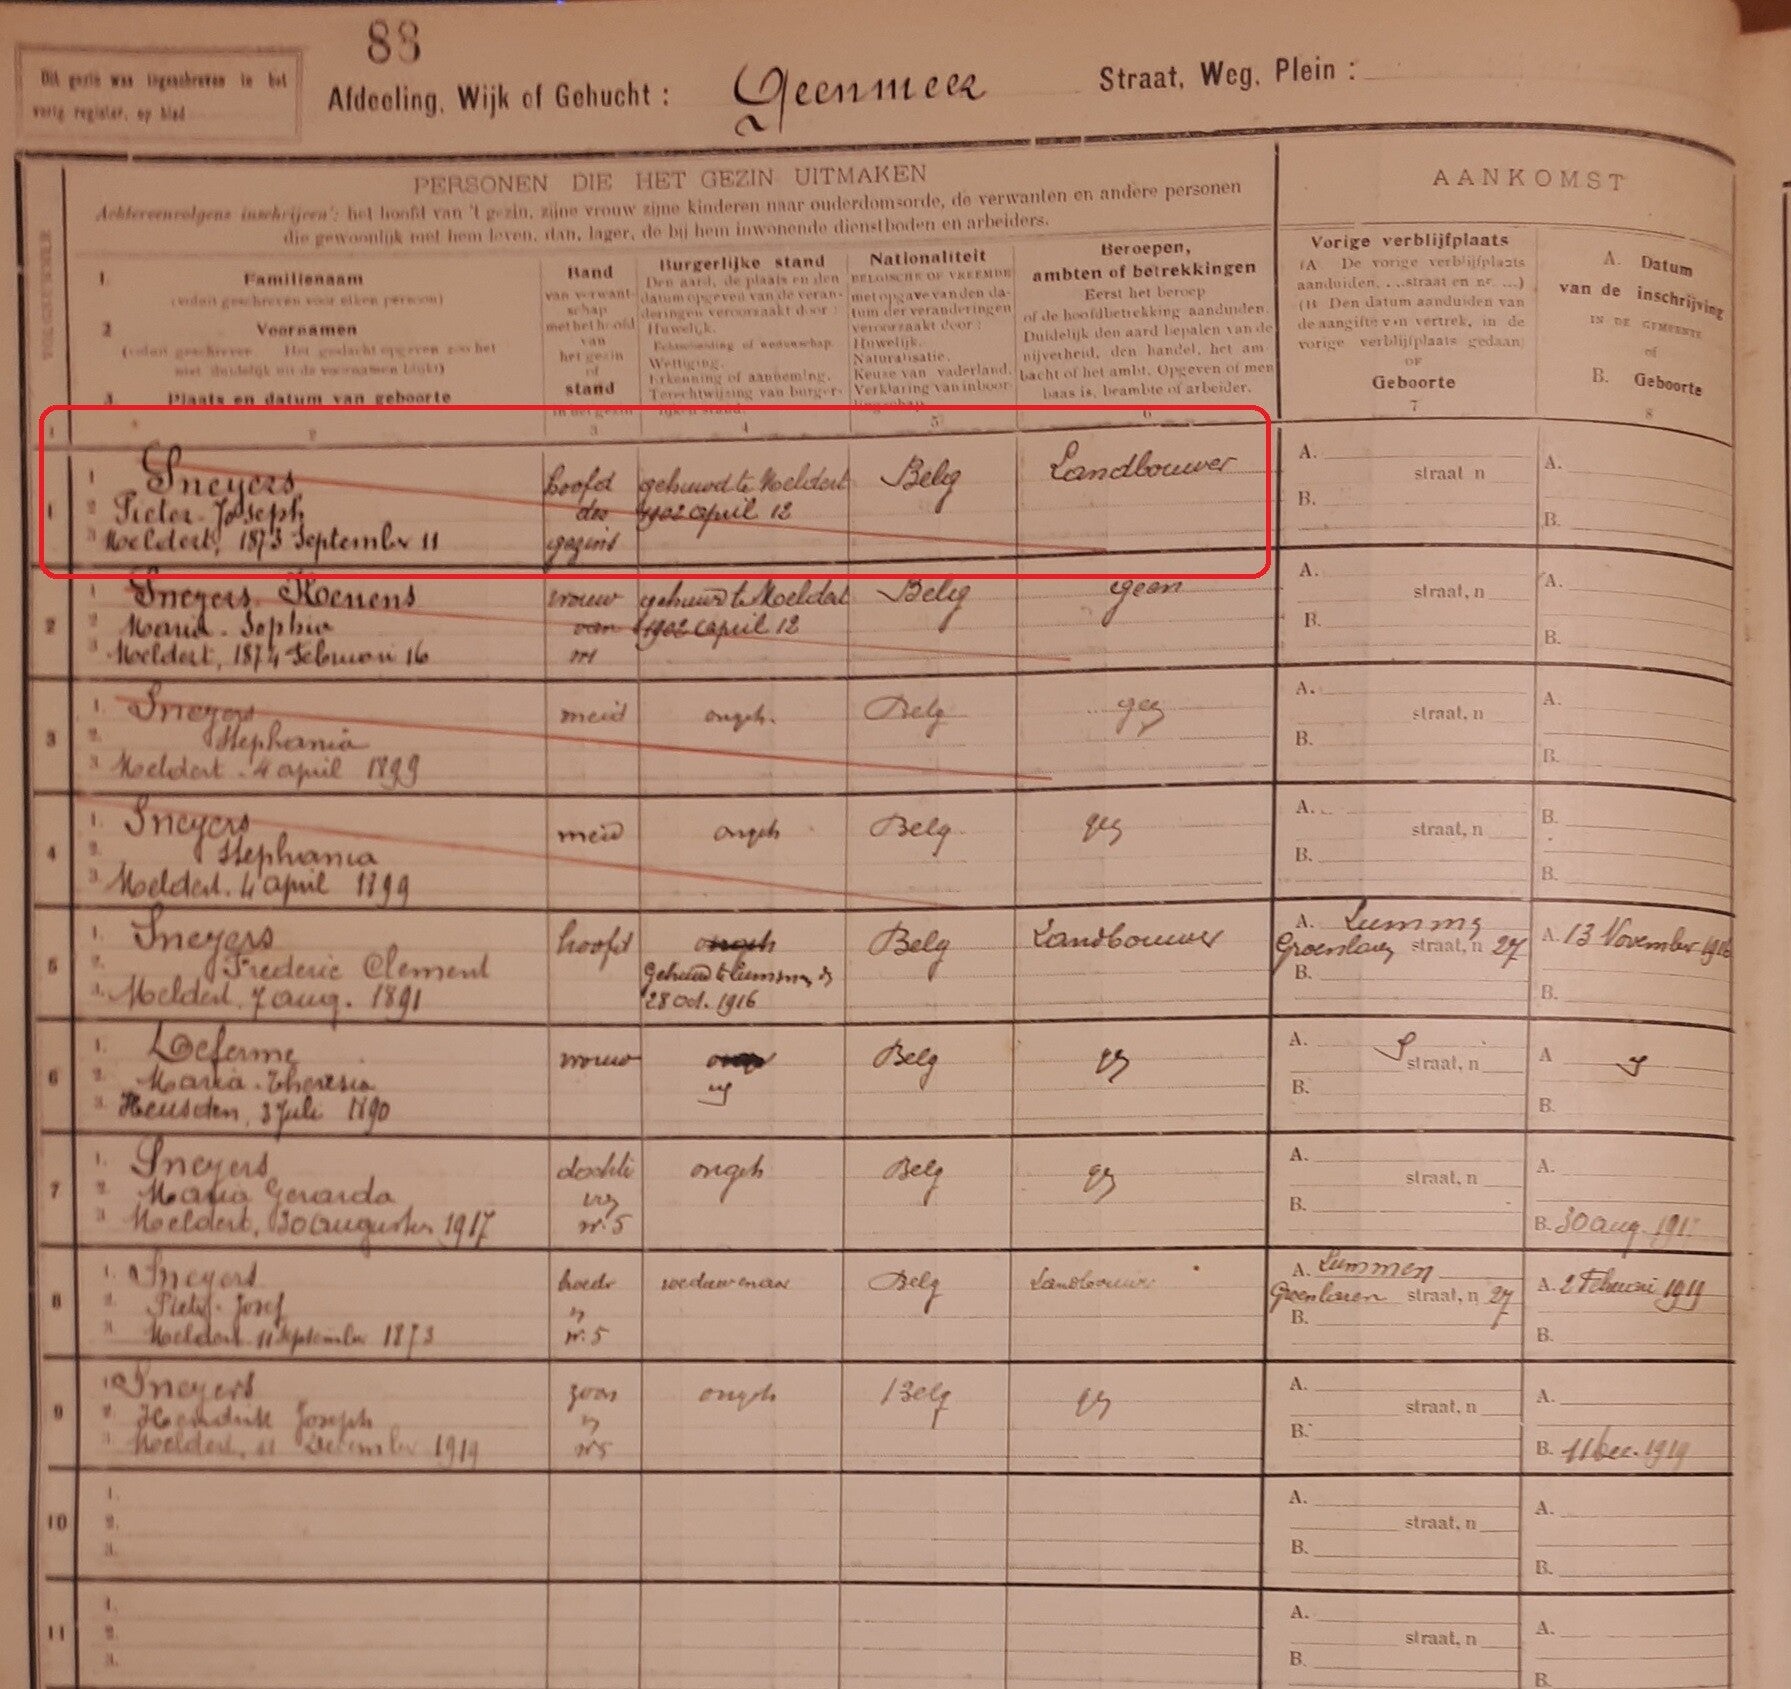 88
Dit gezin was ingeschreven in het
vorig register, op blad
Afdeeling, Wijk of Gehucht : Geenmeer Straat, Weg, Plein :
PERSONEN DIE HET GEZIN UITMAKEN
AANKOMST
Achtereenvolgens inschrijven : het hoofd van 't gezin, zijne vrouw zijne kinderen naar ouderdomsorde, de verwanten en andere personen
die gewoonlijk met hem leven, dan, lager, de bij hem inwonende dienstboden en arbeiders.
1. Familienaam
(voluit geschreven voor elken persoon)
2. Voornamen
3. Plaats en datum van geboorte
Band
van verwant-
schap
met het hoofd
van
het gezin
of
stand
in het gezin
Burgerlijke stand
Den aard, de plaats en den
datum opgeven van de veran-
deringen veroorzaakt door :
Huwelijk.
Echtscheiding of weduwschap.
Wettiging.
Erkenning of aanneming.
Terechtwijzing van burger-
lijken stand.
Nationaliteit
BELGISCHE OF VREEMDE
met opgave van den da-
tum der veranderingen
veroorzaakt door :
Huwelijk.
Naturalisatie.
Keuse van vaderland.
Verklaring van inboor-
lingschap.
Beroepen,
ambten of betrekkingen
Eerst het beroep
of de hoofdbetrekking aanduiden.
Duidelijk den aard bepalen van de
nijverheid, den handel, het am-
bacht of het ambt. Opgeven of men
baas is, beambte of arbeider.
Vorige verblijfplaats
(A De vorige verblijfplaats
aanduiden, ...straat en nr. ...)
(B Den datum aanduiden van
de aangifte van vertrek, in de
vorige verblijfplaats gedaan)
OF
Geboorte
A. Datum
van de inschrijving
IN DE GEMEENTE
of
B. Geboorte
1 2 3 4 5 6 7 8
1 1 Sneyers hoofd gehuwd te Meldert Belg Landbouwer A. straat n A.
2 Pieter-Joseph des 1902 april 12 B.
3 Meldert, 1873 September 11 gezins B.
2 1 Sneyers Koenens vrouw gehuwd te Meldert Belg geen A. straat, n A.
2 Maria-Sophia van 1902 april 12 B.
3 Meldert, 1874 Februari 16 nr 1 B.
3 1. Sneyers meid ongeh. Belg A. straat, n A.
2. Stephania B.
3 Meldert 4 april 1899 B.
4 1. Sneyers meid ongeh Belg A. straat, n B.
2. Stephania B.
3 Meldert. 4 april 1899 B.
5 1. Sneyers hoofd ongeh Belg Landbouwer A. A. 13 November 1916
2. Frederic Clement straat, n 27
3. Meldert, 7 aug. 1891 28 oct. 1916 B. B.
6 1. vrouw Belg A. straat, n A
2. Maria-Theresia B.
3. Heusden, 3 Juli 1890 B.
7 1. Sneyers ongeh Belg A. straat, n A.
2. Maria Gerarda B.
3 Meldert, 30 augustus 1917 nr. 5 B. 30 aug.
8 1. Sneyers weduwenaar Belg Landbouwer A. Lummen A. 2 Februari 1919
2. Pieter-Josef straat, n 27
3 Meldert 11 September 1873 nr. 5 B. B.
9 1 Sneyers zoon ongeh Belg A. straat, n A.
2. Hendrik Joseph B.
3 Meldert, 11 December 1919 nr 5 B. 11 Dec. 1919
10 1. A. straat, n A.
2.
3. B. B.
11 1. A. straat, n A.
2.
3. B. B.